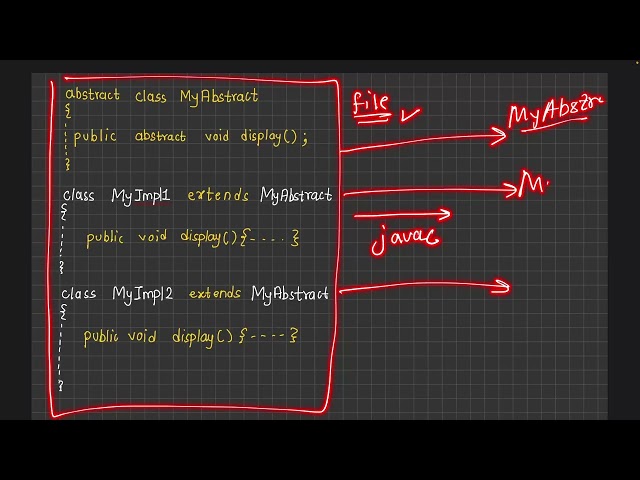 abstract class MyAbstract
{
public abstract void display();
}
class MyImpl1 extends MyAbstract
{
public void display(){----}
}
class MyImpl2 extends MyAbstract
{
public void display(){----}
}
file
MyAbstra
M.
javac